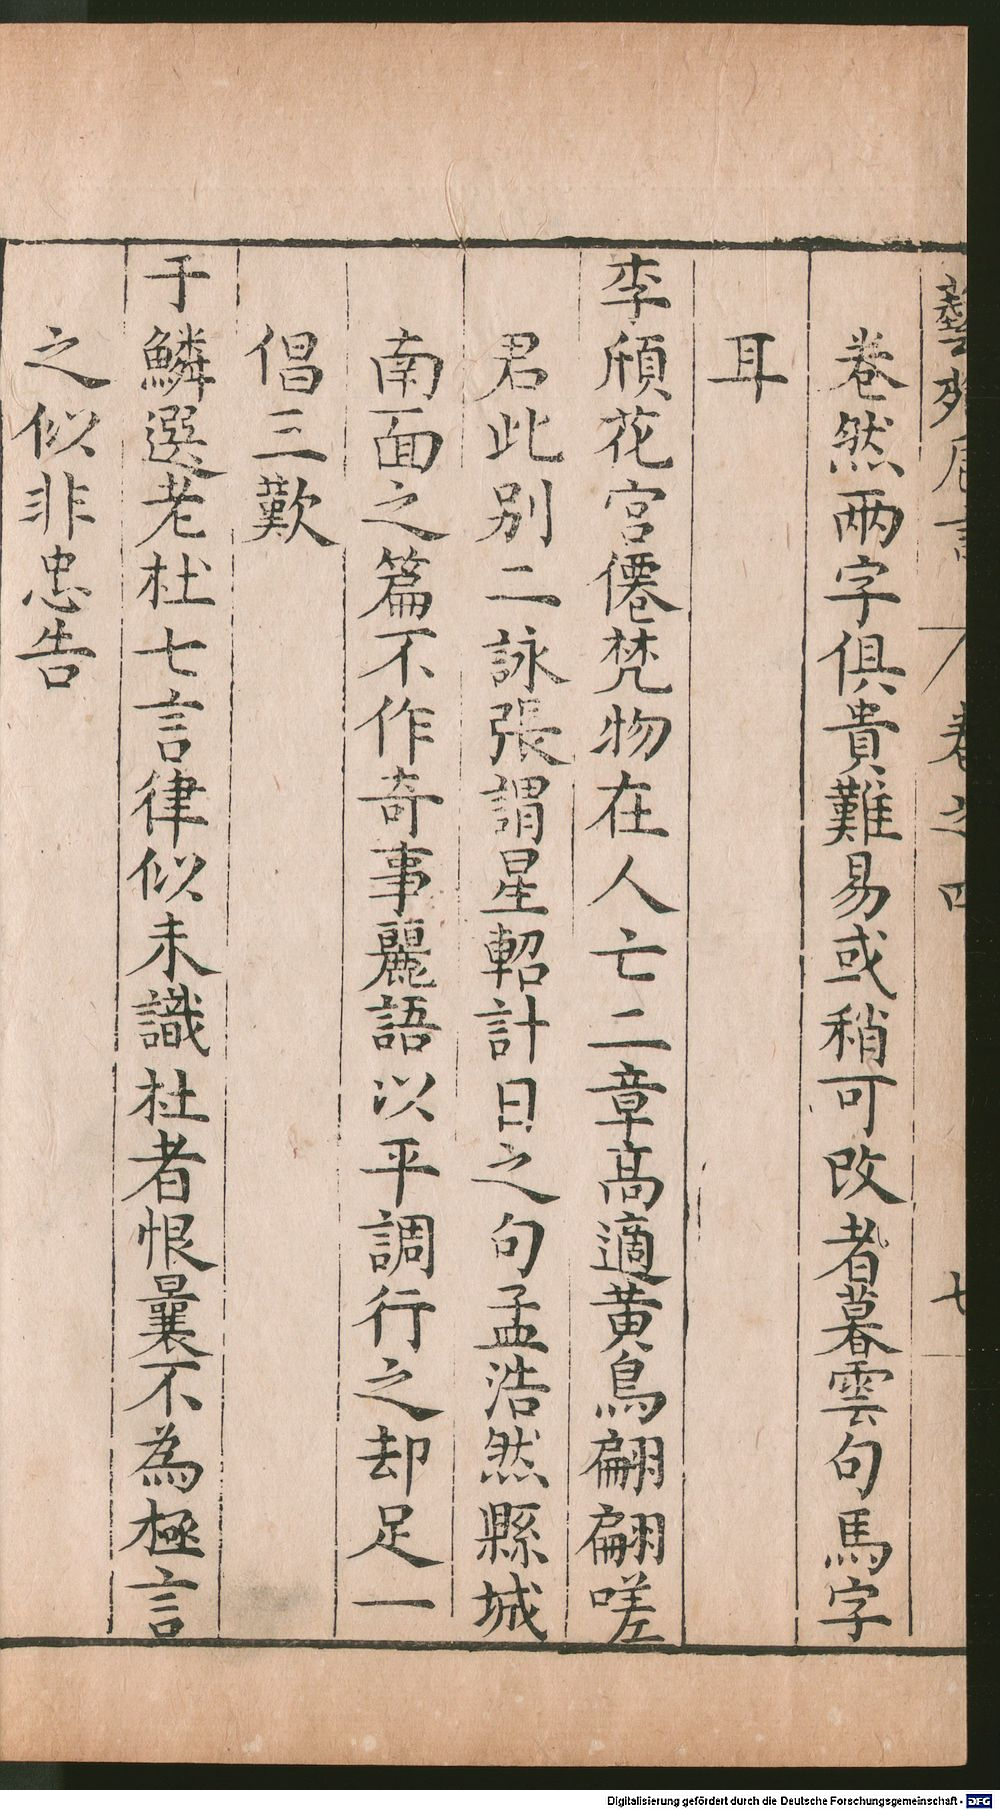 藝苑卮言 卷之四 七
卷然兩字俱貴難易或稍可改者暮雲句馬字
耳
李頎花宮僊梵物在人亡二章高適黄鳥翩翩嗟
君此別二詠張謂星軺計日之句孟浩然縣城
南面之篇不作奇事麗語以平調行之却足一
倡三歎
于鱗選老杜七言律似未識杜者恨曩不為極言
之似非忠告
Digitalisierung gefördert durch die Deutsche Forschungsgemeinschaft - DFG